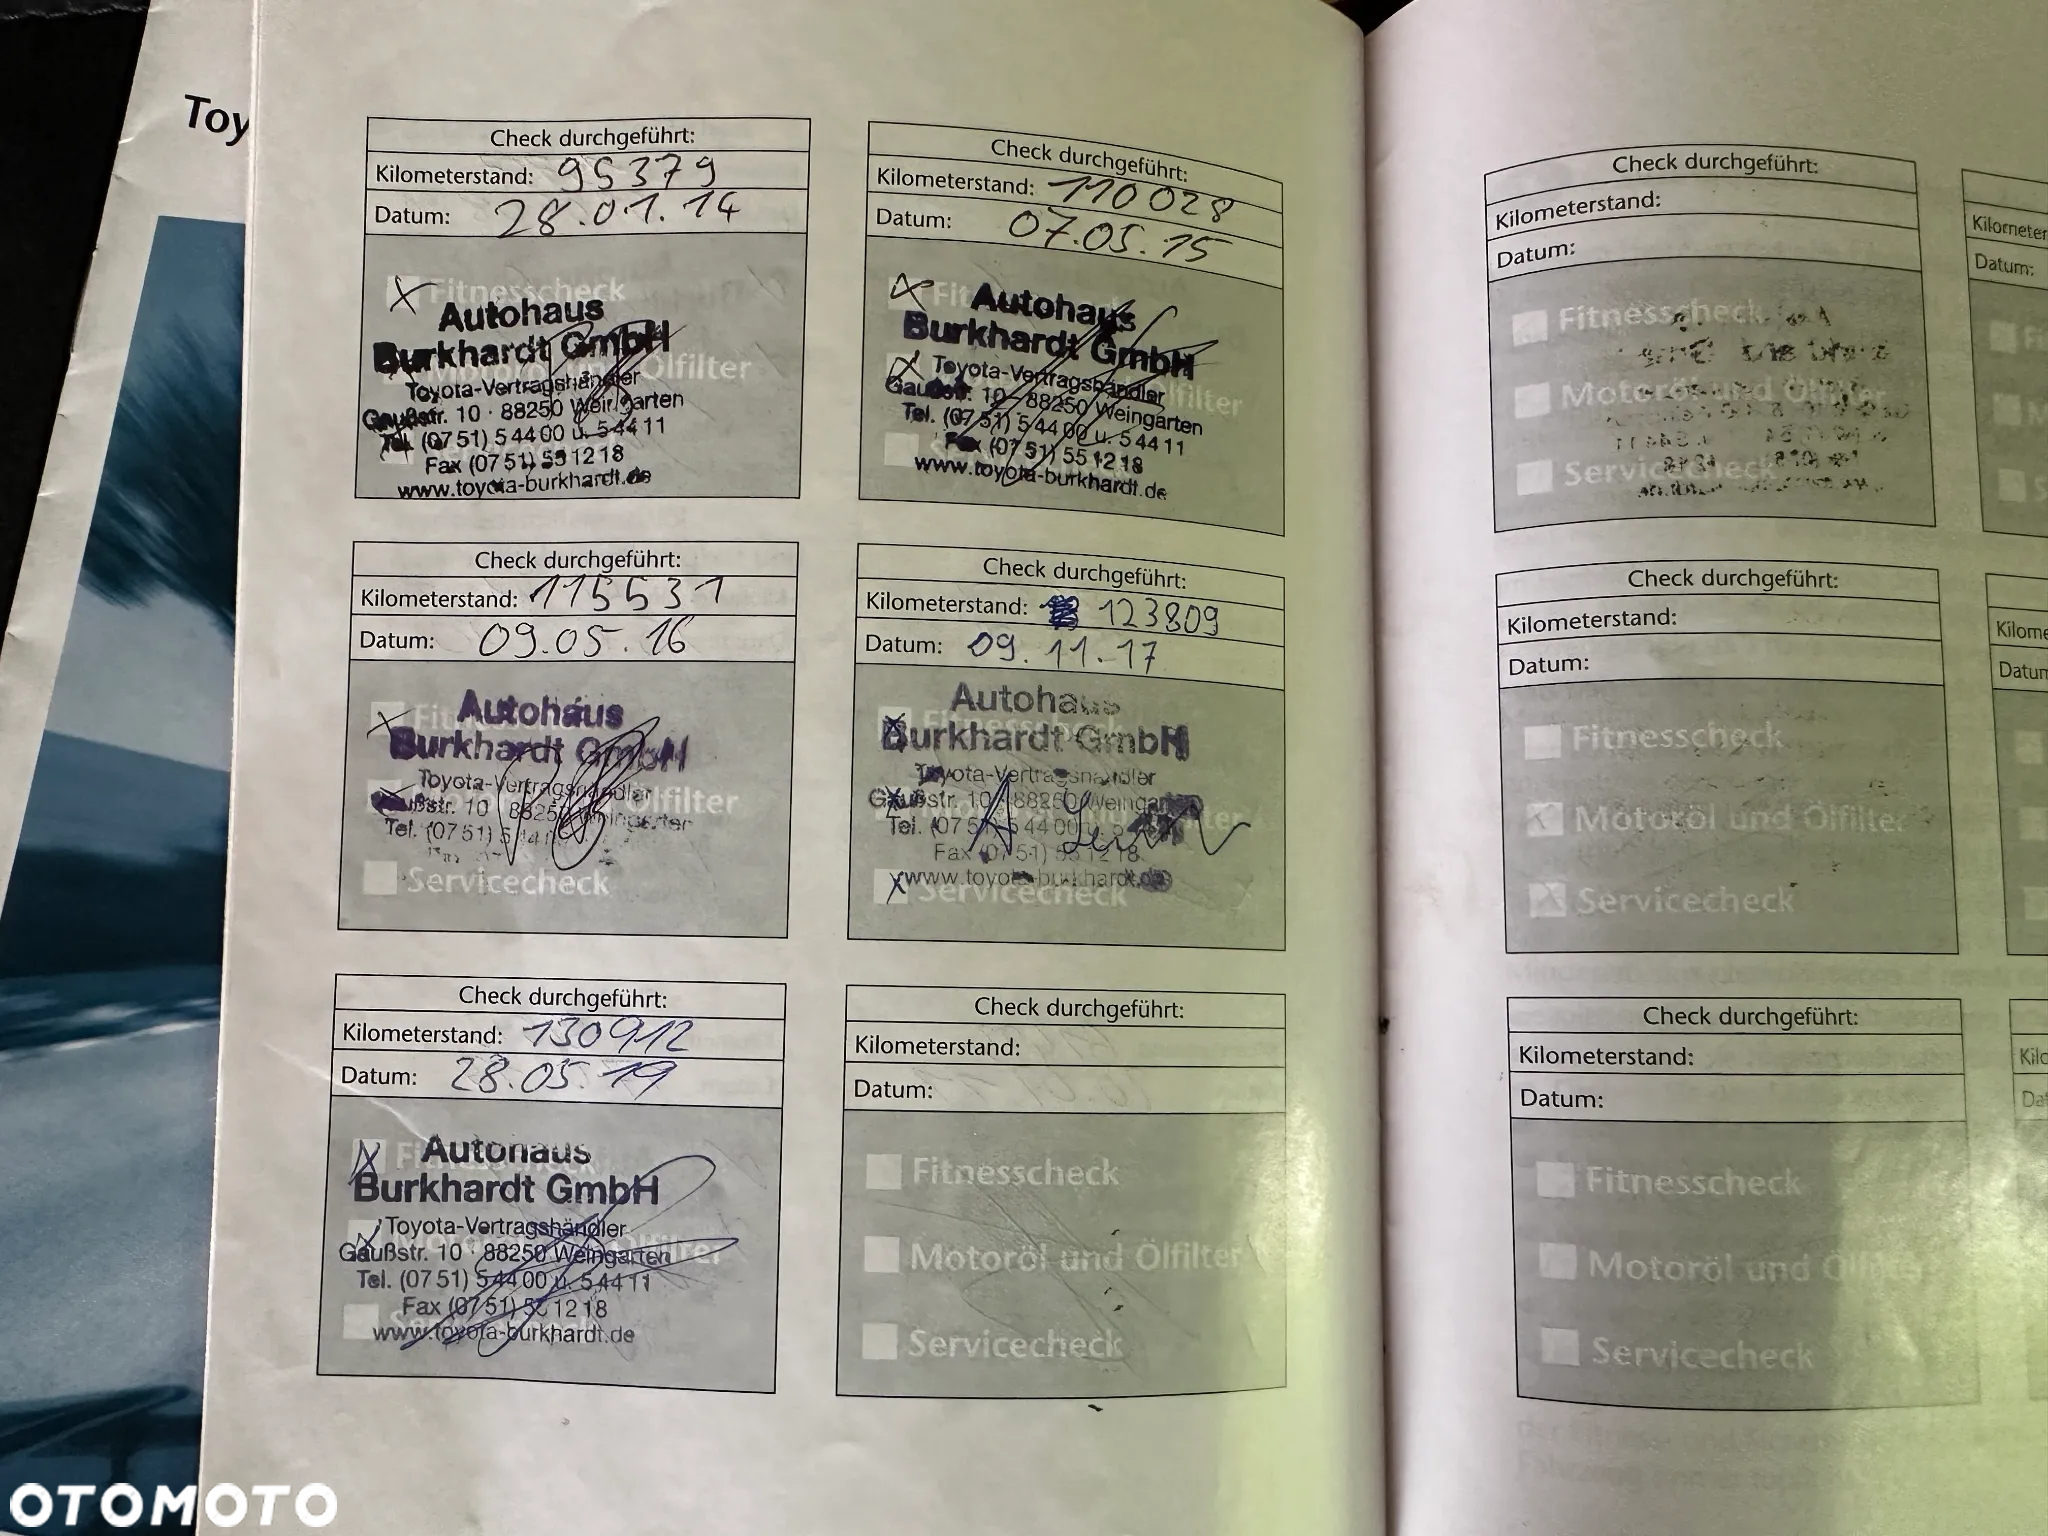 Toy
Check durchgeführt:
Kilometerstand: 95379
Datum: 28.01.14
Fitnesscheck
Autohaus
Burkhardt GmbH
Ölfilter
Toyota-Vertragshändler
Gaußstr. 10 · 88250 Weingarten
Tel. (07 51) 5 44 00 u. 5 44 11
Fax (07 51) 55 12 18
www.toyota-burkhardt.de
Check durchgeführt:
Kilometerstand: 110028
Datum: 07.05.15
Autohaus
Burkhardt GmbH
Toyota-Vertragshändler
Gaußstr. 10 - 88250 Weingarten
Ölfilter
Tel. (07 51) 5 44 00 u. 5 44 11
Fax (07 51) 55 12 18
www.toyota-burkhardt.de
Check durchgeführt:
Kilometerstand: 115531
Datum: 09.05.16
Autohaus
Burkhardt GmbH
Toyota-Vertragshändler
Gaußstr. 10 88250 Weingarten
Ölfilter
Tel. (07 51) 5 44
Servicecheck
Check durchgeführt:
Kilometerstand: 123809
Datum: 09.11.17
Autohaus
Fitnesscheck
Burkhardt GmbH
Toyota-Vertragshändler
Gaußstr. 10 · 88250 Weingarten
Tel. (07 51) 5 44 00 u.
Fax (07 51) 55 12 18
www.toyota-burkhardt.de
Servicecheck
Check durchgeführt:
Kilometerstand: 130912
Datum: 28.05.19
Autohaus
Burkhardt GmbH
Toyota-Vertragshändler
Gaußstr. 10 · 88250 Weingarten
Tel. (07 51) 5 44 00 u. 5 44 11
Fax (07 51) 55 12 18
www.toyota-burkhardt.de
Check durchgeführt:
Kilometerstand:
Datum:
Fitnesscheck
Motoröl und Ölfilter
Servicecheck
Check durchgeführt:
Kilometerstand:
Datum:
Fitnesscheck
Motoröl und Ölfilter
Servicecheck
Kilometer
Datum:
Fi
M
S
Check durchgeführt:
Kilometerstand:
Datum:
Fitnesscheck
Motoröl und Ölfilter
Servicecheck
Kilome
Datum
Check durchgeführt:
Kilometerstand:
Datum:
Fitnesscheck
Motoröl und Ölfilter
Servicecheck
Kilo
Da
OTOMOTO